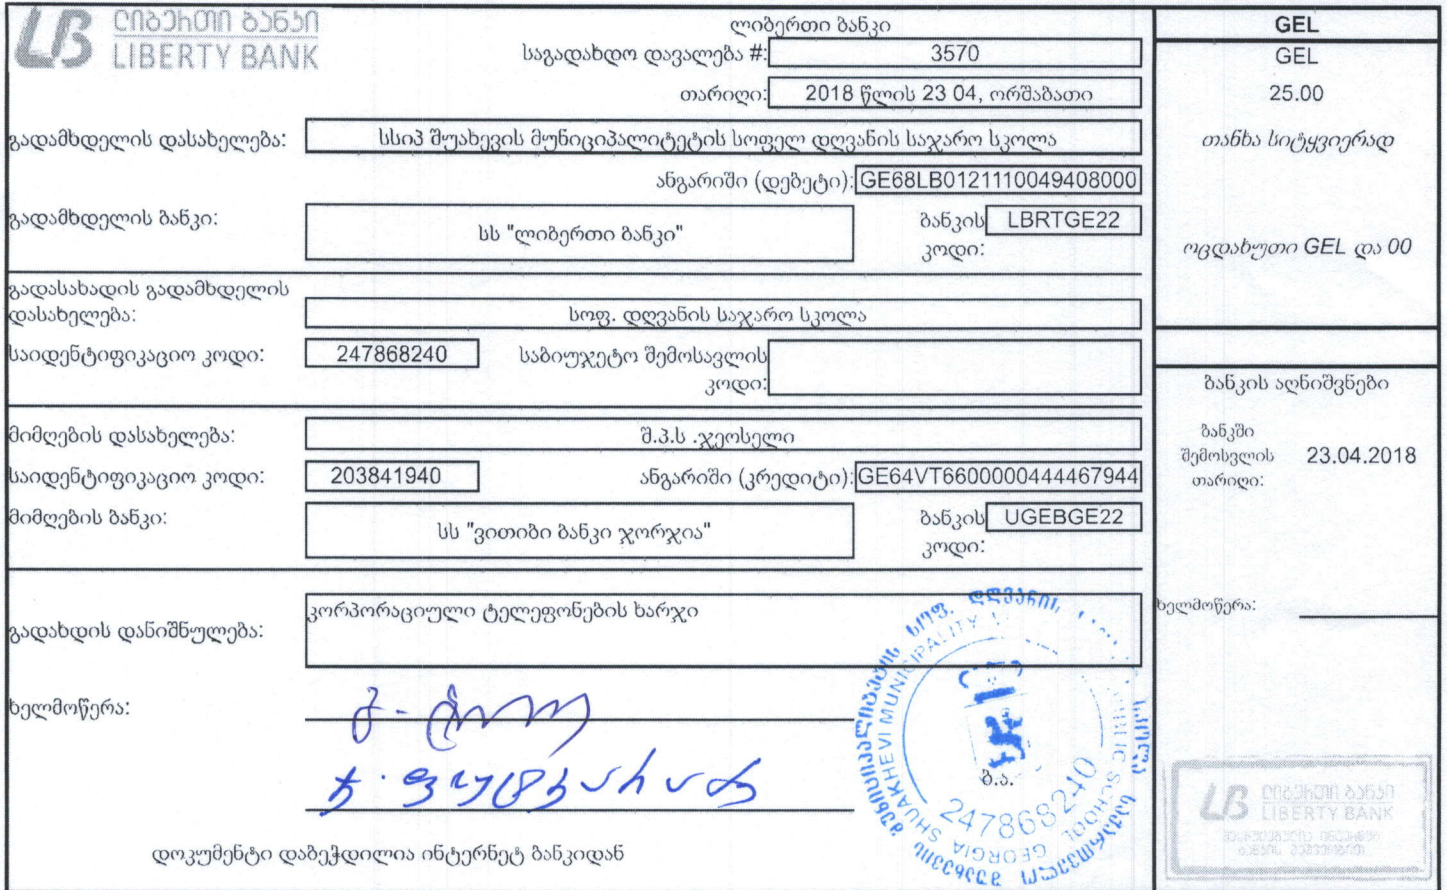 ლიბერთი ბანკი
LIBERTY BANK
ლიბერთი ბანკი
საგადახდო დავალება #: 3570
თარიღი: 2018 წლის 23 04, ორშაბათი
გადამხდელის დასახელება: სსიპ შუახევის მუნიციპალიტეტის სოფელ დღვანის საჯარო სკოლა
ანგარიში (დებეტი): GE68LB0121110049408000
გადამხდელის ბანკი: სს "ლიბერთი ბანკი" ბანკის კოდი: LBRTGE22
გადასახადის გადამხდელის
დასახელება: სოფ. დღვანის საჯარო სკოლა
საიდენტიფიკაციო კოდი: 247868240 საბიუჯეტო შემოსავლის
კოდი:
მიმღების დასახელება: შ.პ.ს .ჯეოსელი
საიდენტიფიკაციო კოდი: 203841940 ანგარიში (კრედიტი): GE64VT6600000444467944
მიმღების ბანკი: სს "ვითიბი ბანკი ჯორჯია" ბანკის კოდი: UGEBGE22
გადახდის დანიშნულება: კორპორაციული ტელეფონების ხარჯი
ხელმოწერა:
ბ.ა.
დოკუმენტი დაბეჭდილია ინტერნეტ ბანკიდან
GEL
GEL
25.00
თანხა სიტყვიერად
ოცდახუთი GEL და 00
ბანკის აღნიშვნები
ბანკში
შემოსვლის 23.04.2018
თარიღი:
ხელმოწერა:
SHUAKHEVI MUNICIPALITY
PUBLIC SCHOOL
GEORGIA
247868240
ლიბერთი ბანკი
LIBERTY BANK